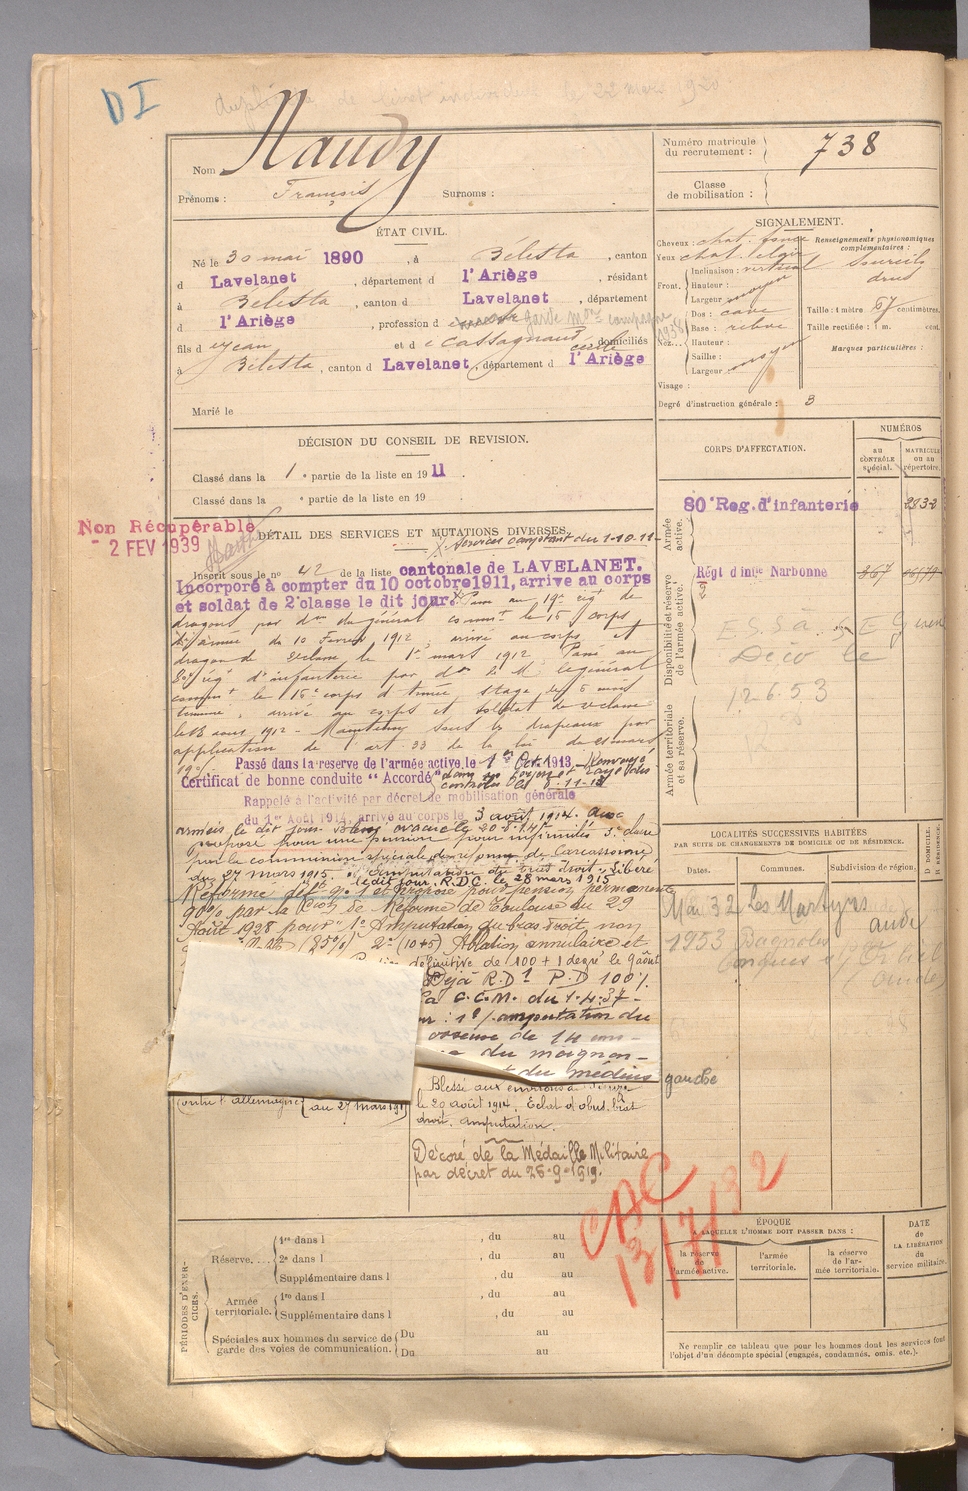 DI
de le 22 mars
Nom Naudy
Prénoms : François Surnoms :
Numéro matricule du recrutement : 738
Classe de mobilisation :
ÉTAT CIVIL.
Né le 30 mai 1890, à Bélesta, canton
d Lavelanet, département d l'Ariège, résidant
à Bélesta, canton d Lavelanet, département
d l'Ariège, profession d garde campagne 1938
fils d Jean et d Cassagnaud domiciliés
à Bélesta, canton d Lavelanet, département d l'Ariège
Marié le
SIGNALEMENT.
Cheveux : chat. foncé
Yeux chat. clair
Front. Inclinaison : vertical
Hauteur :
Largeur moyen
Nez. Dos : cave
Base : relevé
Hauteur :
Saillie :
Largeur moyen
Visage :
Degré d'instruction générale : 3
Renseignements physionomiques complémentaires :
sourcils drus
Taille : 1 mètre 67 centimètres.
Taille rectifiée : 1 m. cent.
Marques particulières :
DÉCISION DU CONSEIL DE REVISION.
Classé dans la 1e partie de la liste en 1911.
Classé dans la e partie de la liste en 19
Non Récupérable
- 2 FEV 1939
DÉTAIL DES SERVICES ET MUTATIONS DIVERSES.
X Services comptant du 1-10-11
Inscrit sous le n° 42 de la liste cantonale de LAVELANET.
Incorporé à compter du 10 octobre 1911, arrive au corps
et soldat de 2e classe le dit jour. X Passé au 19e rég. de
dragons par don du général commt le 15 corps
d'armée du 10 Février 1912 arrivé au corps et
dragon de 2e classe le 1er mars 1912 Passé au
80e rég d'infanterie par don de M. le général
commt le 15e corps d'armée, stage de 5 mois
terminé, arrivé au corps et soldat de 2e classe
le 18 août 1912 - Maintenu sous les drapeaux par
application de l'art 33 de la loi du 21 mars
190
Passé dans la réserve de l'armée active, le 1er Oct. 1913
Certificat de bonne conduite "Accordé" dans ses foyers et rayé des contrôles le 8-11-13
Rappelé à l'activité par décret de mobilisation générale
du 1er Août 1914, arrivé au corps le 3 août 1914. aux
armées le dit jour. Blessé évacué le 20-8-14
proposé pour une pension pour infirmités 3e classe
par la commission spéciale de réforme de Carcassonne
du 27 mars 1915. "Amputation du bras droit" Libéré
le dit jour, R.D.C. le 28 mars 1915
Réformé déf n° 1 et proposé pour pension permanente
90% par la Con de Réforme de Toulouse du 29
Août 1928 pour "1° Amputation du bras droit, non
(85%) 2° (10+5) Ablation annulaire et
définitive de 100 + 1 degré le 9 août
Déjà R.D.1 P.D 100%
la C.C.M. du 1.4.37-
: 1°/ amputation du
osseuse de 14 cm -
du moignon -
du médius gauche
contre l'Allemagne au 27 mars 191
Blessé aux environs de
le 20 août 1914, Eclat d'obus, bras
droit, amputation.
Décoré de la Médaille Militaire
par décret du 26-9-1919.
CORPS D'AFFECTATION.
NUMÉROS
au CONTRÔLE spécial.
MATRICULE ou au répertoire.
Armée active.
80e Reg. d'infanterie 2832
Disponibilité et réserve de l'armée active.
Régt d'infie Narbonne 867
Décd le
12-6-53
Armée territoriale et sa réserve.
LOCALITÉS SUCCESSIVES HABITÉES
PAR SUITE DE CHANGEMENTS DE DOMICILE OU DE RÉSIDENCE.
Dates. Communes. Subdivision de région. D DOMICILE. R RÉSIDENCE.
Mai 32 Les Martyrs aude
1953 Bagnoles
Conques s/ Orbiel
(aude)
CAC
13/7/32
PÉRIODES D'EXERCICES.
Réserve. 1re dans l , du au
2e dans l , du au
Supplémentaire dans l , du au
Armée territoriale. 1re dans l , du au
Supplémentaire dans l , du au
Spéciales aux hommes du service de garde des voies de communication. Du au
Du au
ÉPOQUE
A LAQUELLE L'HOMME DOIT PASSER DANS :
la réserve de l'armée active.
l'armée territoriale.
la réserve de l'armée territoriale.
DATE DE LA LIBÉRATION du service militaire.
Ne remplir ce tableau que pour les hommes dont les services font
l'objet d'un décompte spécial (engagés, condamnés, omis, etc.).